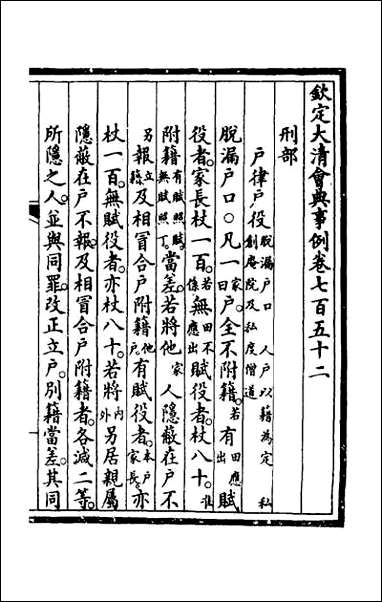 欽定大清會典事例卷七百五十二
刑部
戶律戶役脫漏戶口 人戶以籍為定 私創庵院及私度僧道
脫漏戶口○凡一家曰戶全不附籍。若有田應出賦
役者。家長杖一百。若係田不應出無賦役者。杖八十。准
附籍有賦照賦無賦照丁當差。若將他家人隱蔽在戶不
另報立籍及相冒合戶附籍。他戶有賦役者。本戶家長亦
杖一百。無賦役者。亦杖八十。若將內外另居親屬
隱蔽在戶不報。及相冒合戶附籍者。各減二等。
所隱之人。並與同罪。改正立戶。別籍當差。其同